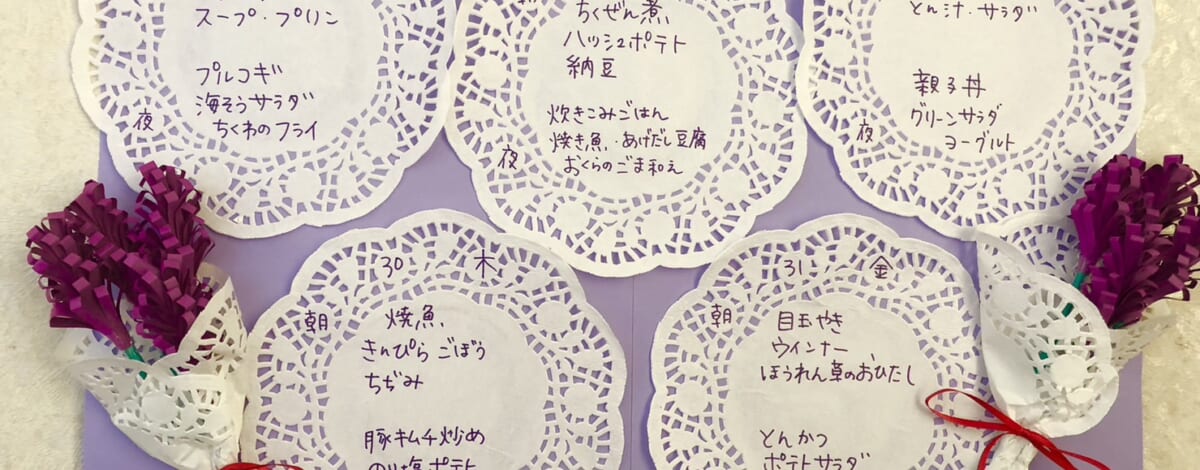 スープ・プリン
夜
プルコギ
海そうサラダ
ちくわのフライ
ちくぜん煮
ハッシュポテト
納豆
夜
炊きこみごはん
焼き魚・あげだし豆腐
おくらのごま和え
とん汁・サラダ
夜
親子丼
グリーンサラダ
ヨーグルト
30 木
朝
焼魚
きんぴらごぼう
ちぢみ
豚キムチ炒め
のり塩ポテト
31 金
朝
目玉やき
ウインナー
ほうれん草のおひたし
とんかつ
ポテトサラダ